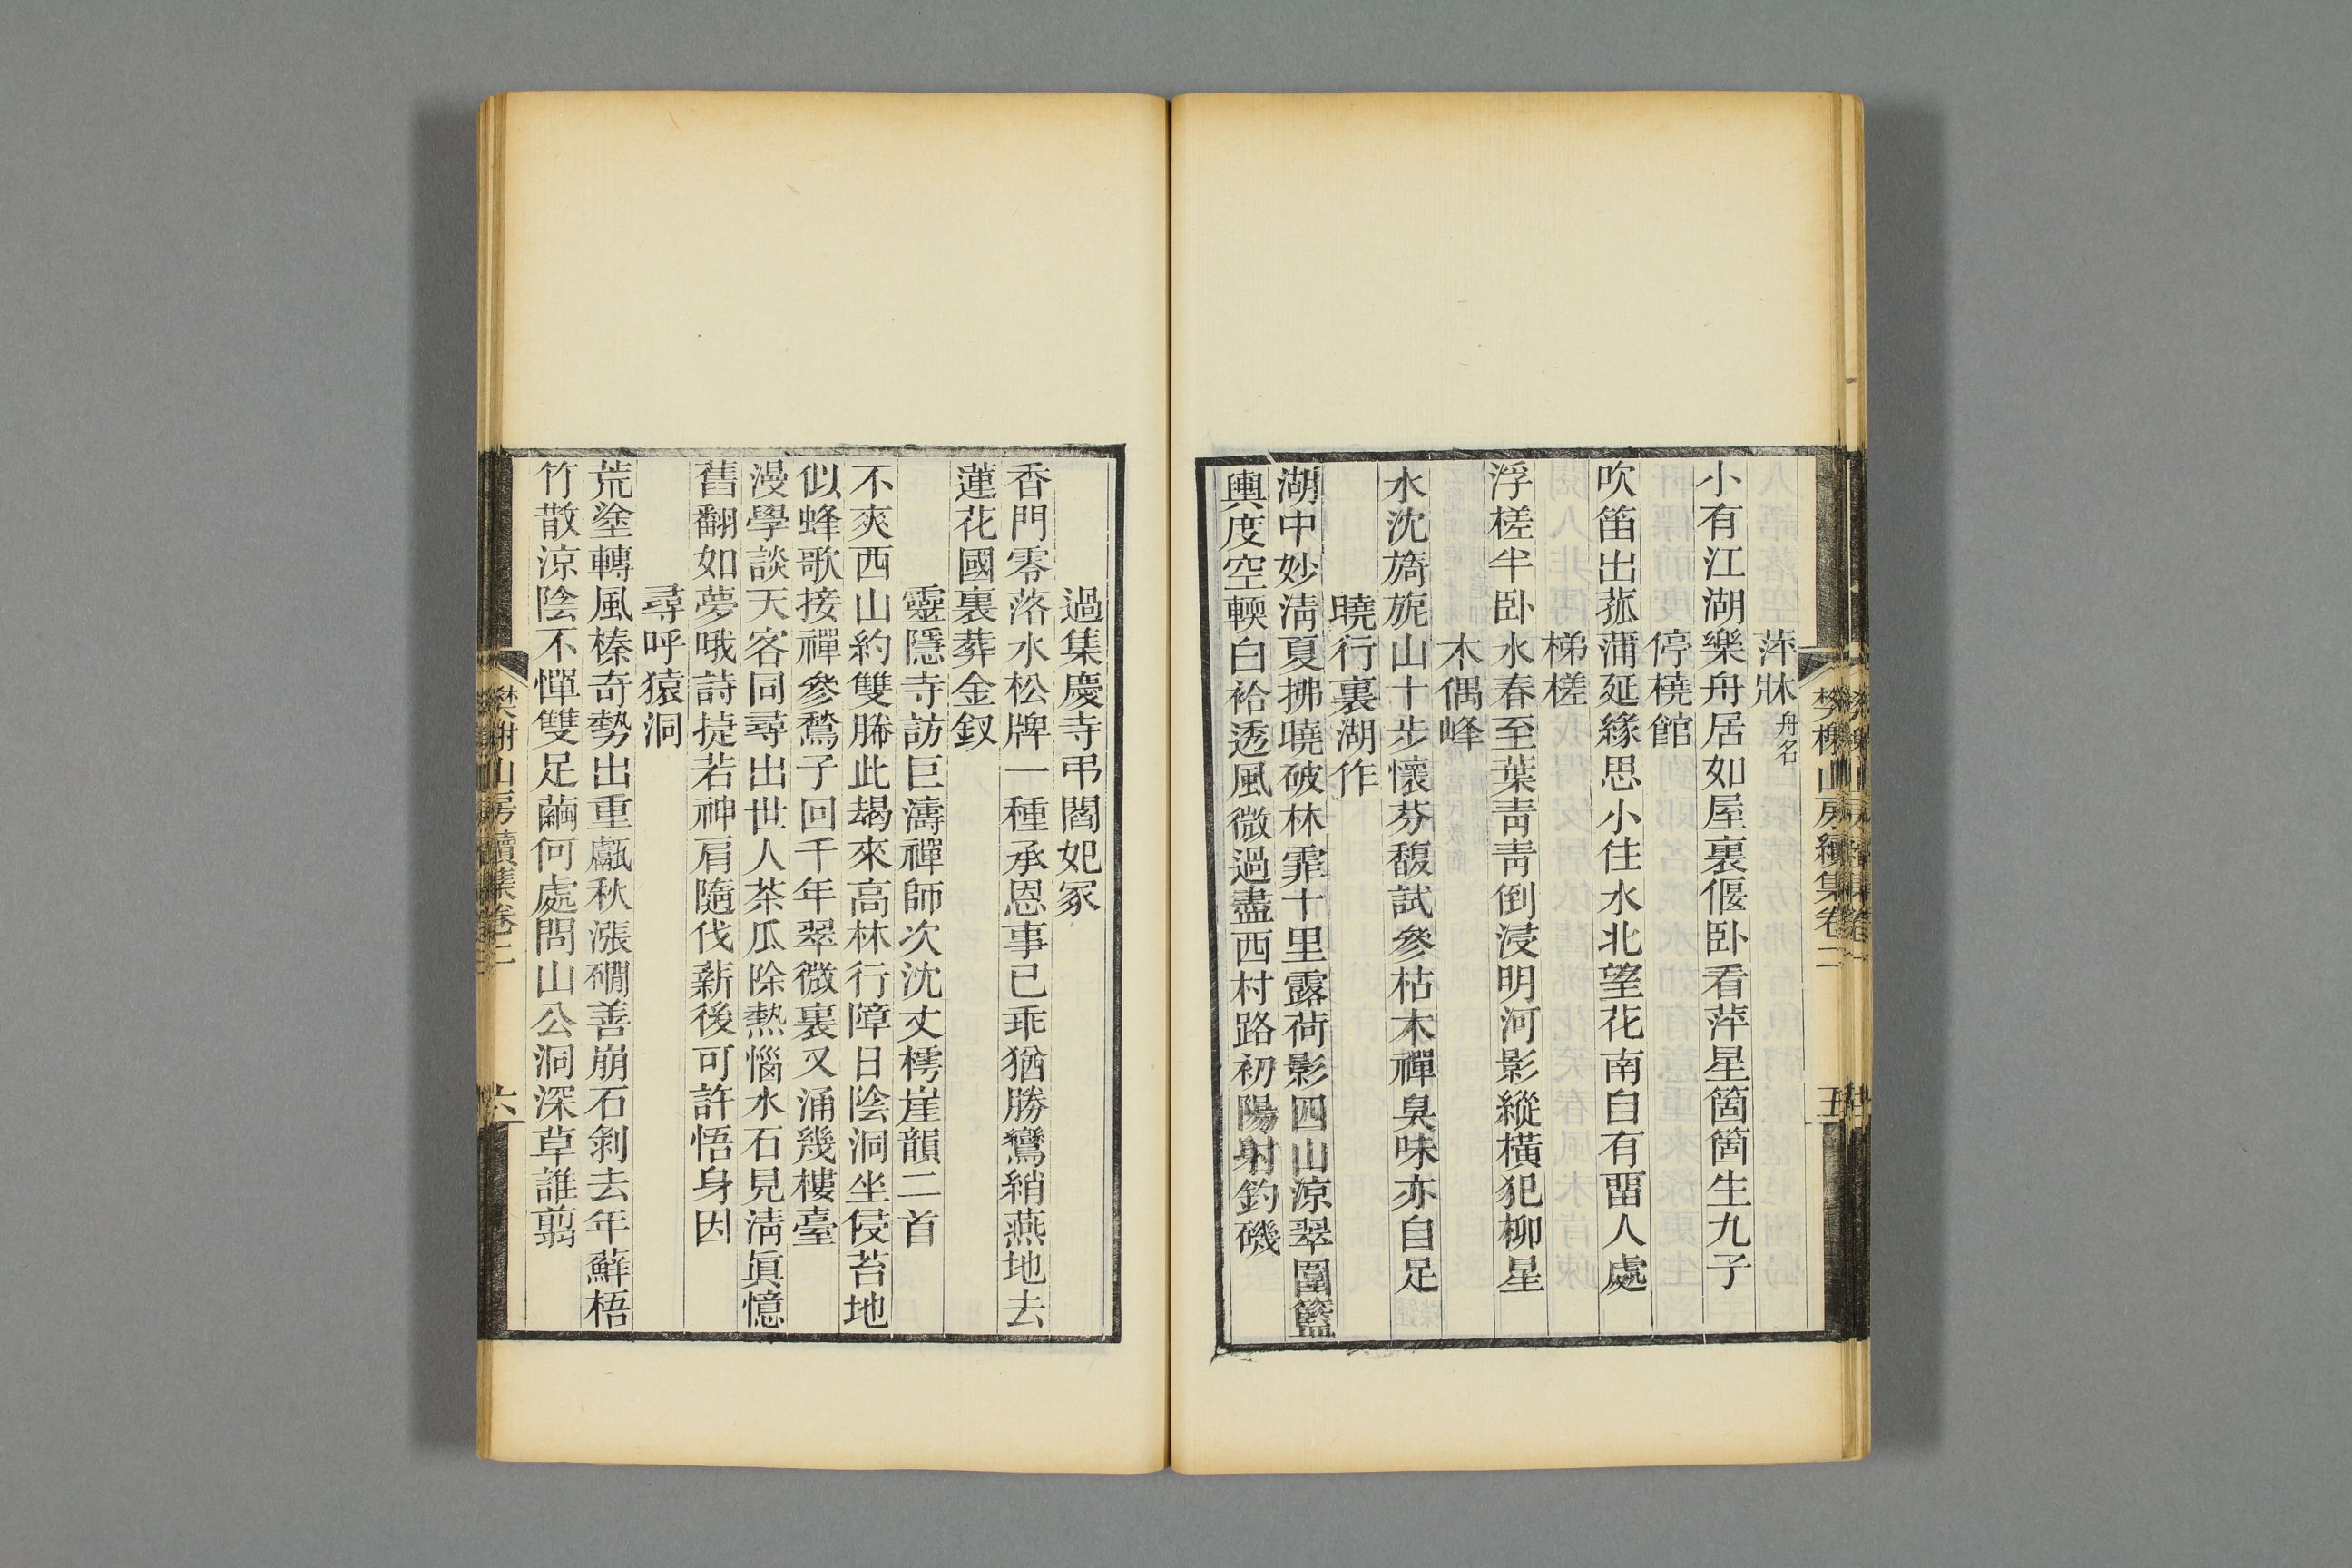 萍牀舟名
小有江湖樂舟居如屋裏偃卧看萍星箇箇生九子
停橈館
吹笛出菰蒲延緣思小住水北望花南自有畱人處
梯槎
浮槎半卧水春至葉靑靑倒浸明河影縱橫犯柳星
木偶峰
水沈旖旎山十步懷芬馥試參枯木禪臭味亦自足
曉行裏湖作
湖中妙淸夏拂曉破林霏十里露荷影四山涼翠圍籃
輿度空輭白袷透風微過盡西村路初陽射釣磯
樊榭山房續集卷二
五
過集慶寺弔閻妃冢
香門零落水松牌一種承恩事已乖猶勝鸞綃燕地去
蓮花國裏葬金釵
靈隱寺訪巨濤禪師次沈丈樗崖韻二首
不爽西山約雙勝此朅來高林行障日陰洞坐侵苔地
似蜂歌接禪參鶖子回千年翠微裏又涌幾樓臺
漫學談天客同尋出世人茶瓜除熱惱水石見淸眞憶
舊翻如夢哦詩捷若神肩隨伐薪後可許悟身因
尋呼猿洞
荒塗轉風榛奇勢出重甗秋漲礀善崩石剝去年蘚梧
竹散涼陰不憚雙足繭何處問山公洞深草誰翦
樊榭山房續集卷二
六